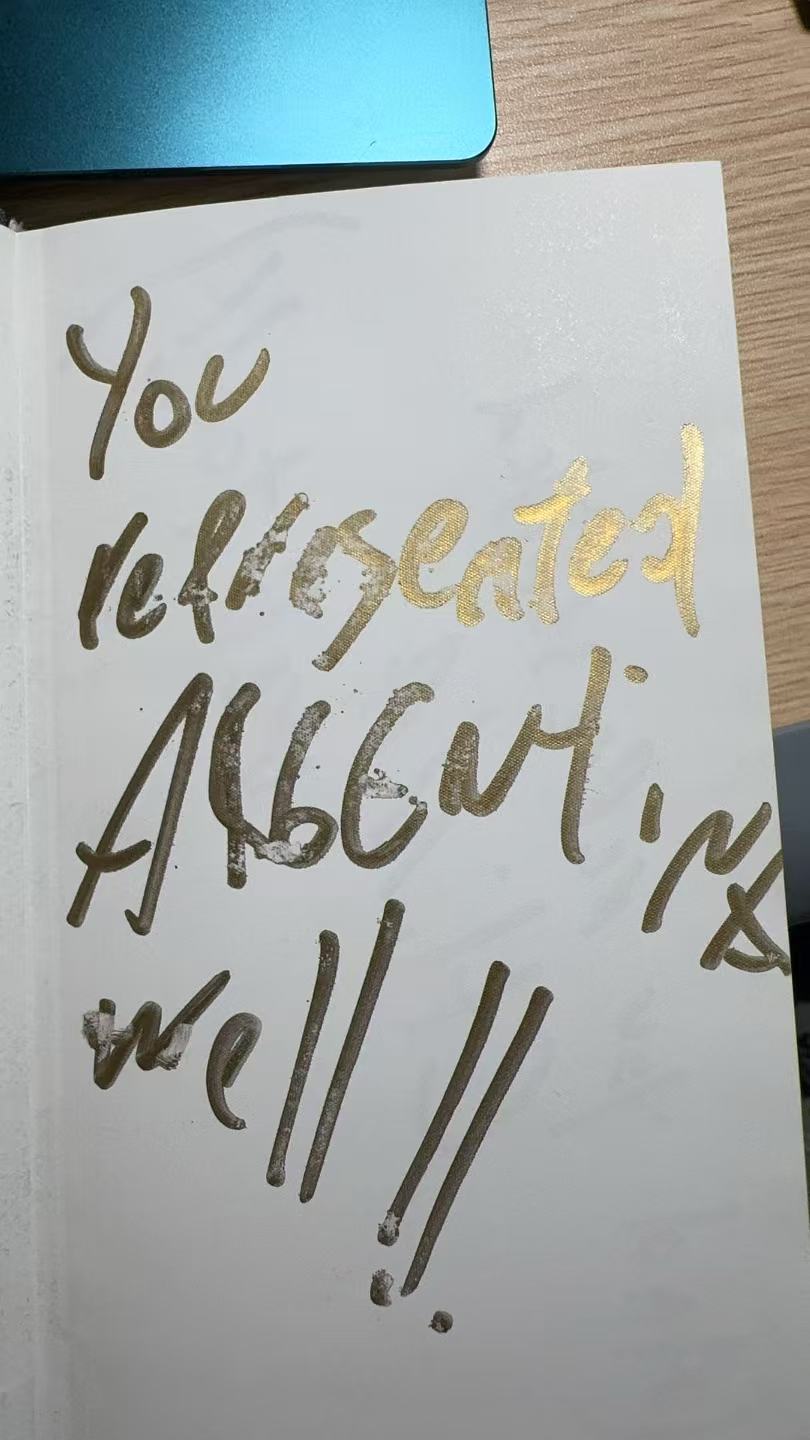 You
represented
ARGENTINA
well!!